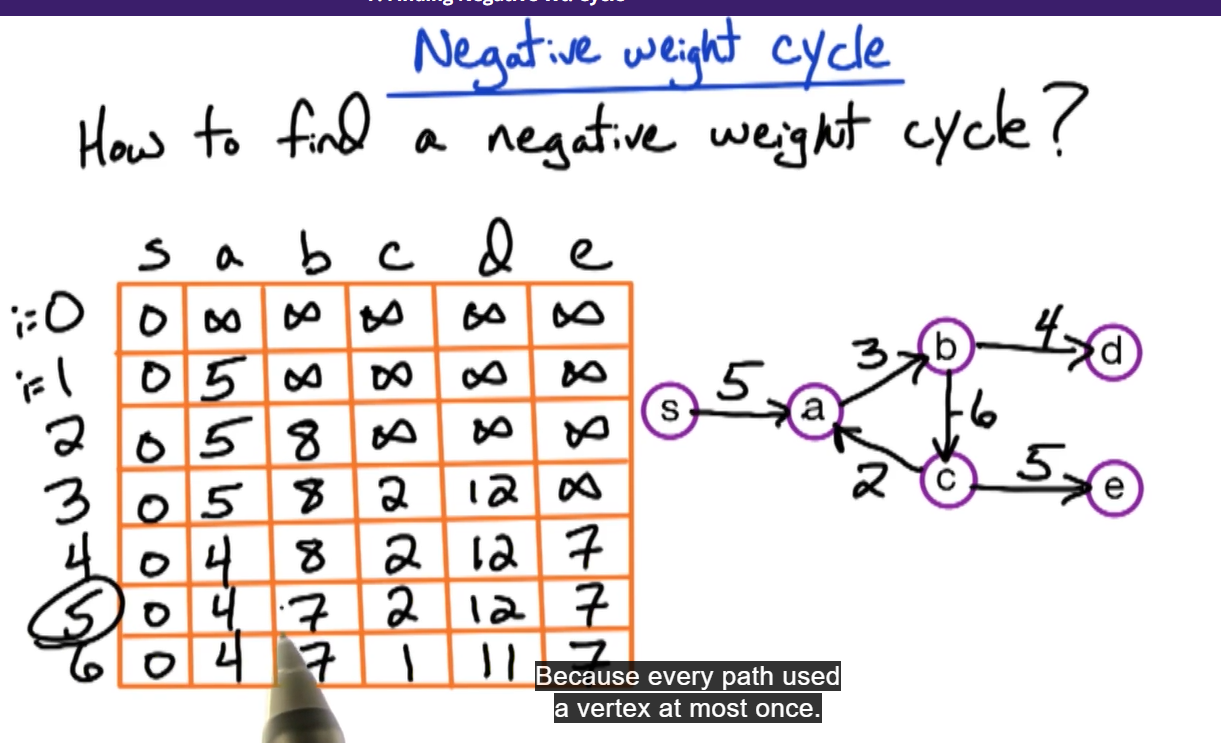 Negative weight cycle
How to find a negative weight cycle?
s a b c d e
i=0 0 ∞ ∞ ∞ ∞ ∞
i=1 0 5 ∞ ∞ ∞ ∞
2 0 5 8 ∞ ∞ ∞
3 0 5 8 2 12 ∞
4 0 4 8 2 12 7
5 0 4 7 2 12 7
6 0 4 7 1 11 7
3 b 4 d
s 5 a -6
2 c 5 e
Because every path used
a vertex at most once.